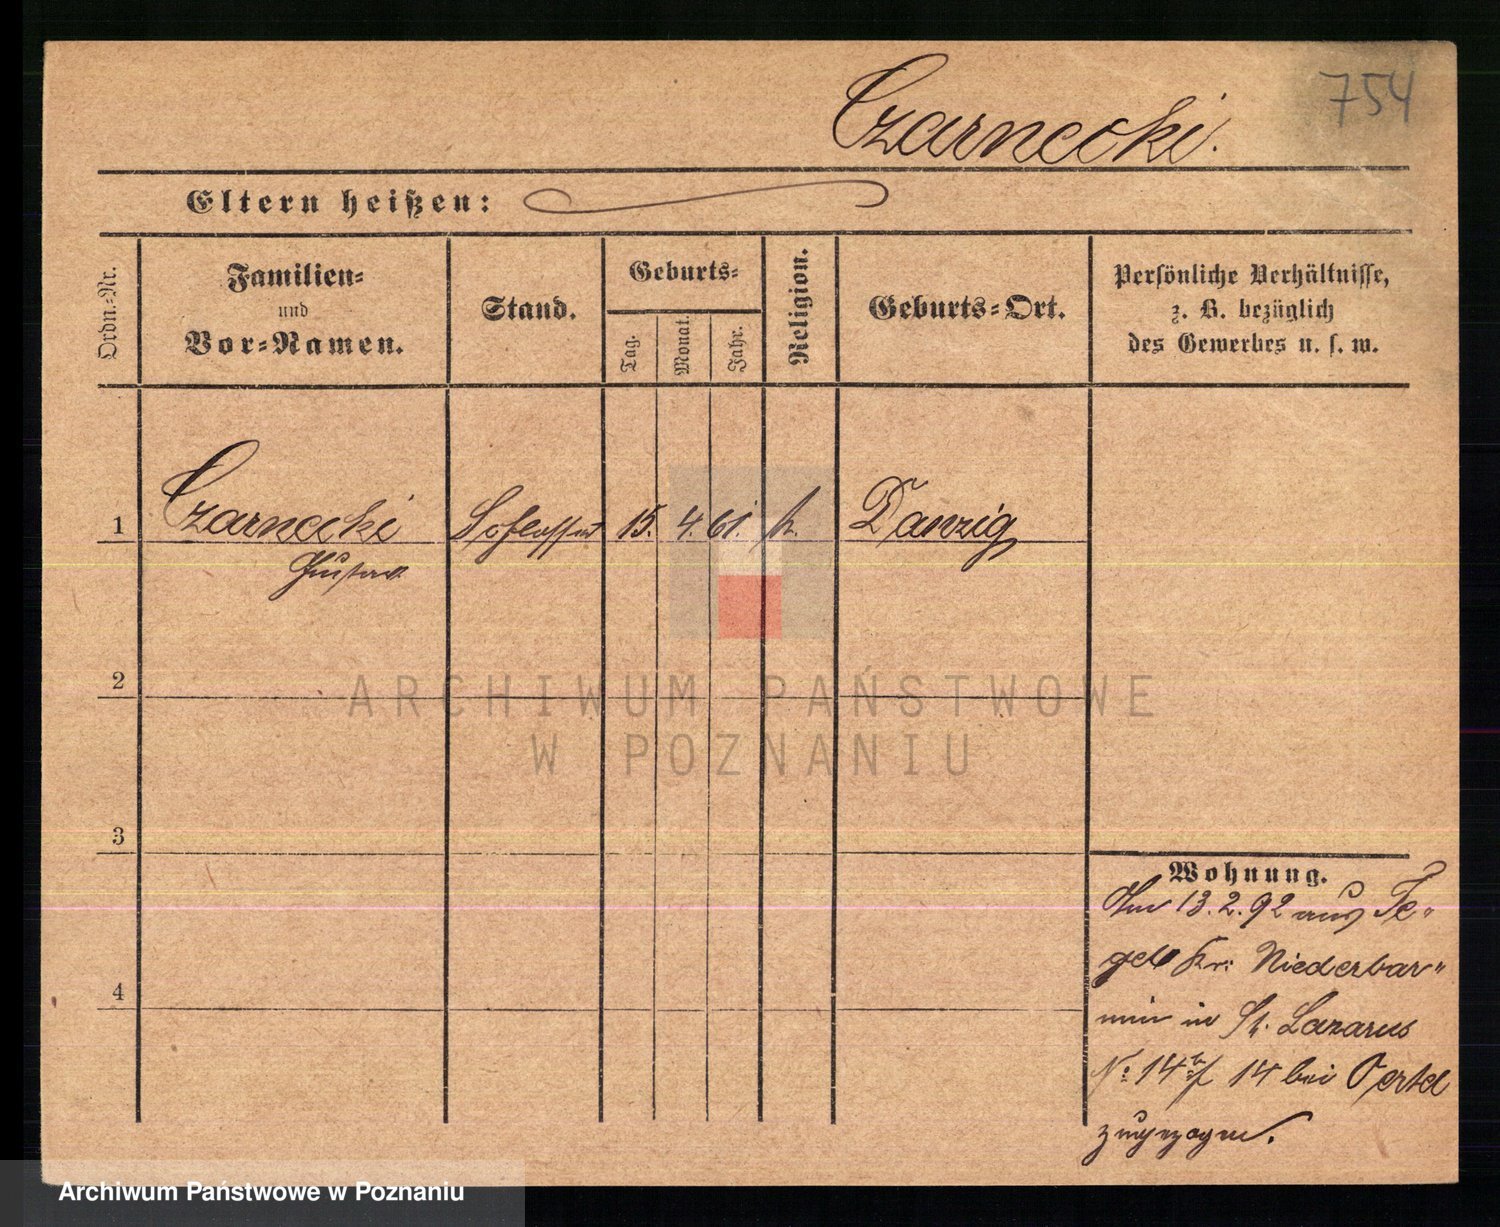 754
Czarnecki.
Eltern heißen:
Ordn.-Nr.
Familien-
und
Vor-Namen.
Stand.
Geburts-
Tag.
Monat.
Jahr.
Religion.
Geburts-Ort.
Persönliche Verhältnisse,
z. B. bezüglich
des Gewerbes u. s. w.
1 Czarnecki Schlosser 15. 4. 61. k. Danzig
Gustav
2
ARCHIWUM PAŃSTWOWE
W POZNANIU
3
Wohnung.
Am 13.2.92 aus Te-
gel Kr: Niederbar-
nim in St. Lazarus
4
No 14 14 bei Oertel
zugezogen.
Archiwum Państwowe w Poznaniu